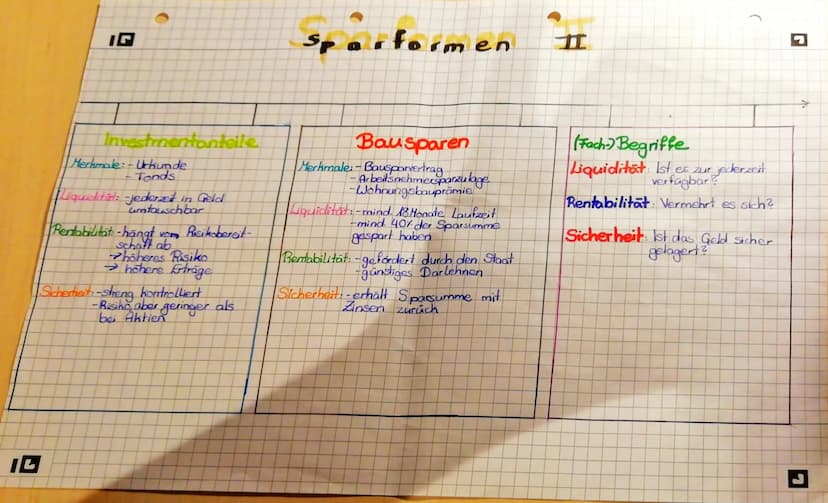 Sparformen II
Investmentanteile
Merkmale: - Urkunde
- Fonds
Liquidität: - jederzeit in Geld
umtauschbar
Rentabilität: - hängt von Risikobereit-
schaft ab
→ höheres Risiko
→ höhere Erträge
Sicherheit: - streng kontrolliert
- Risiko, aber geringer als
bei Aktien
Bausparen
Merkmale: - Bausparvertrag
- Arbeitnehmersparzulage
- Wohnungsbauprämie
Liquidität: - mind. 18 Monate Laufzeit
- mind. 40% der Sparsumme
gespart haben
Rentabilität: - gefördert durch den Staat
- günstiges Darlehnen
Sicherheit: - erhält Sparsumme mit
Zinsen zurück
(Fach-) Begriffe
Liquidität: Ist es zur jederzeit
verfügbar?
Rentabilität: Vermehrt es sich?
Sicherheit: Ist das Geld sicher
gelagert?